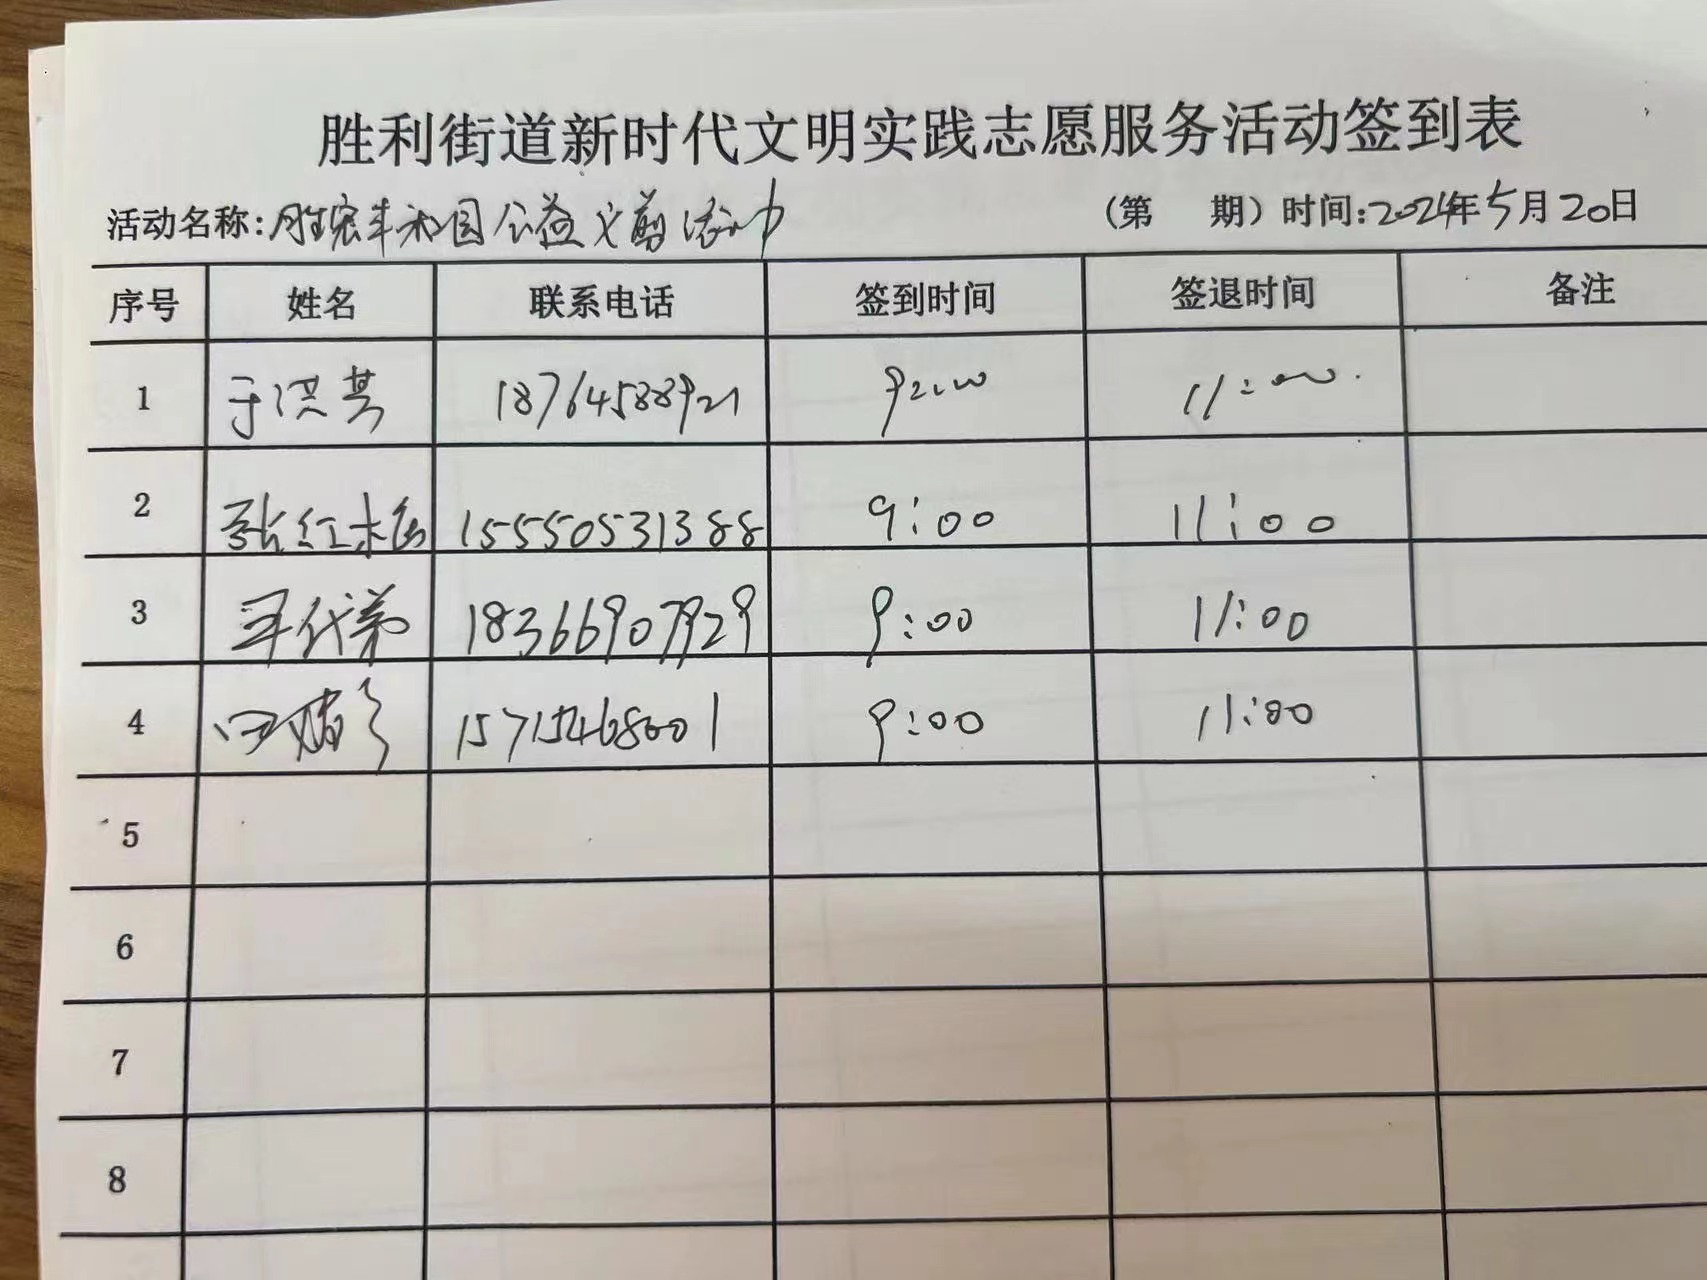 胜利街道新时代文明实践志愿服务活动签到表
活动名称:胜宏丰和园公益义剪活动 (第 期)时间:2024年5月20日
序号 姓名 联系电话 签到时间 签退时间 备注
1 于洪其 18764588921 9:00 11:00
2 张红 15550531388 9:00 11:00
3 18366907929 9:00 11:00
4 15715468001 9:00 11:00
5
6
7
8